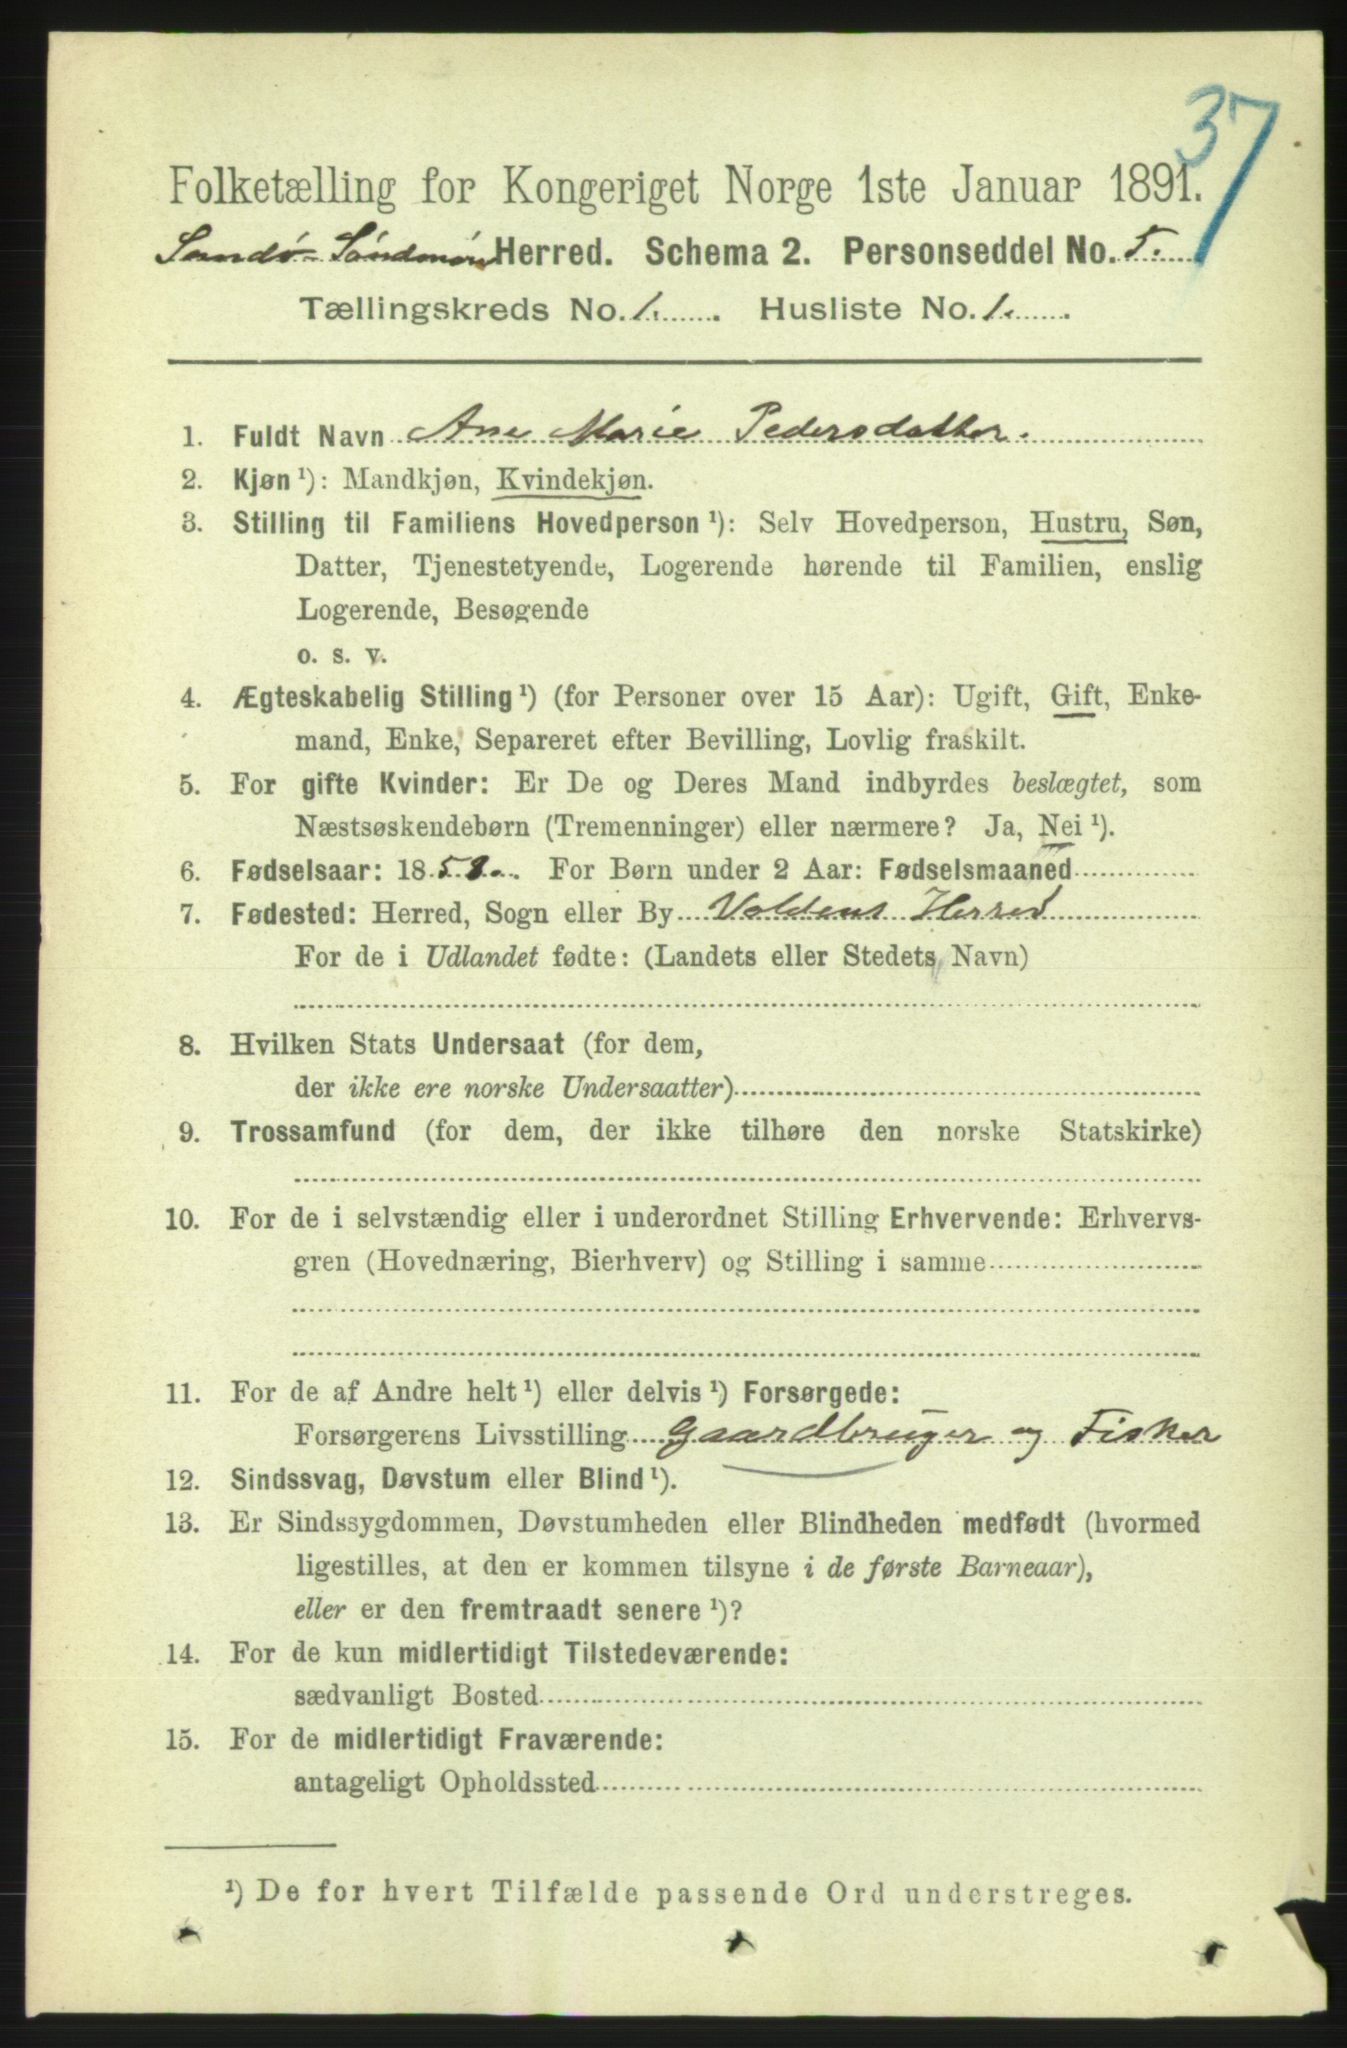 37
Folketælling for Kongeriget Norge 1ste Januar 1891.
Sandø-Søndmøre Herred. Schema 2. Personseddel No. 5.
Tællingskreds No. 1. . Husliste No. 1. .
1. Fuldt Navn Ane Marie Pedersdatter.
2. Kjøn ¹): Mandkjøn, Kvindekjøn.
3. Stilling til Familiens Hovedperson ¹): Selv Hovedperson, Hustru, Søn,
Datter, Tjenestetyende, Logerende hørende til Familien, enslig
Logerende, Besøgende
o. s. v.
4. Ægteskabelig Stilling ¹) (for Personer over 15 Aar): Ugift, Gift, Enke-
mand, Enke, Separeret efter Bevilling, Lovlig fraskilt.
5. For gifte Kvinder: Er De og Deres Mand indbyrdes beslægtet, som
Næstsøskendebørn (Tremenninger) eller nærmere? Ja, Nei ¹).
6. Fødselsaar: 1858. For Børn under 2 Aar: Fødselsmaaned
7. Fødested: Herred, Sogn eller By Voldens Herred
For de i Udlandet fødte: (Landets eller Stedets Navn)
8. Hvilken Stats Undersaat (for dem,
der ikke ere norske Undersaatter)
9. Trossamfund (for dem, der ikke tilhøre den norske Statskirke)
10. For de i selvstændig eller i underordnet Stilling Erhvervende: Erhvervs-
gren (Hovednæring, Bierhverv) og Stilling i samme
11. For de af Andre helt ¹) eller delvis ¹) Forsørgede:
Forsørgerens Livsstilling Gaardbruger og Fisker
12. Sindssvag, Døvstum eller Blind ¹).
13. Er Sindssygdommen, Døvstumheden eller Blindheden medfødt (hvormed
ligestilles, at den er kommen tilsyne i de første Barneaar),
eller er den fremtraadt senere ¹)?
14. For de kun midlertidigt Tilstedeværende:
sædvanligt Bosted
15. For de midlertidigt Fraværende:
antageligt Opholdssted
¹) De for hvert Tilfælde passende Ord understreges.